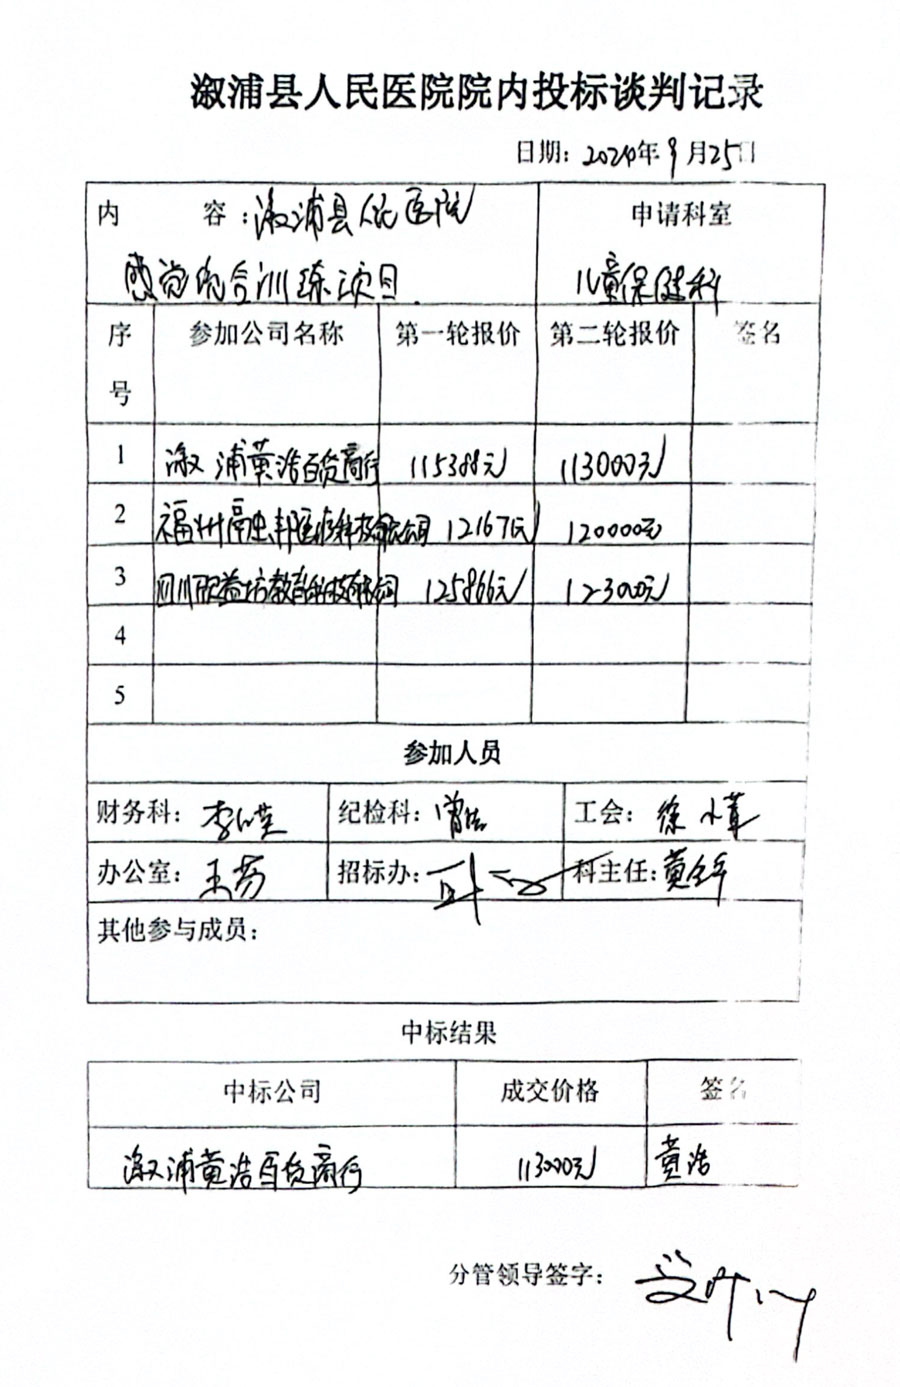 溆浦县人民医院院内投标谈判记录
日期：2024年9月25日
内 容：溆浦县人民医院
感觉统合训练项目
申请科室
儿童保健科
序号 参加公司名称 第一轮报价 第二轮报价 签名
1 溆浦黄浩百货商行 115388元 113000元
2 福州 医疗科技有限公司 12167元 120000元
3 四川欣益坊教育科技有限公司 125866元 123000元
4
5
参加人员
财务科： 纪检科： 工会：徐
办公室：王芬 招标办： 科主任：黄
其他参与成员：
中标结果
中标公司 成交价格 签名
溆浦黄浩百货商行 113000元 黄浩
分管领导签字：